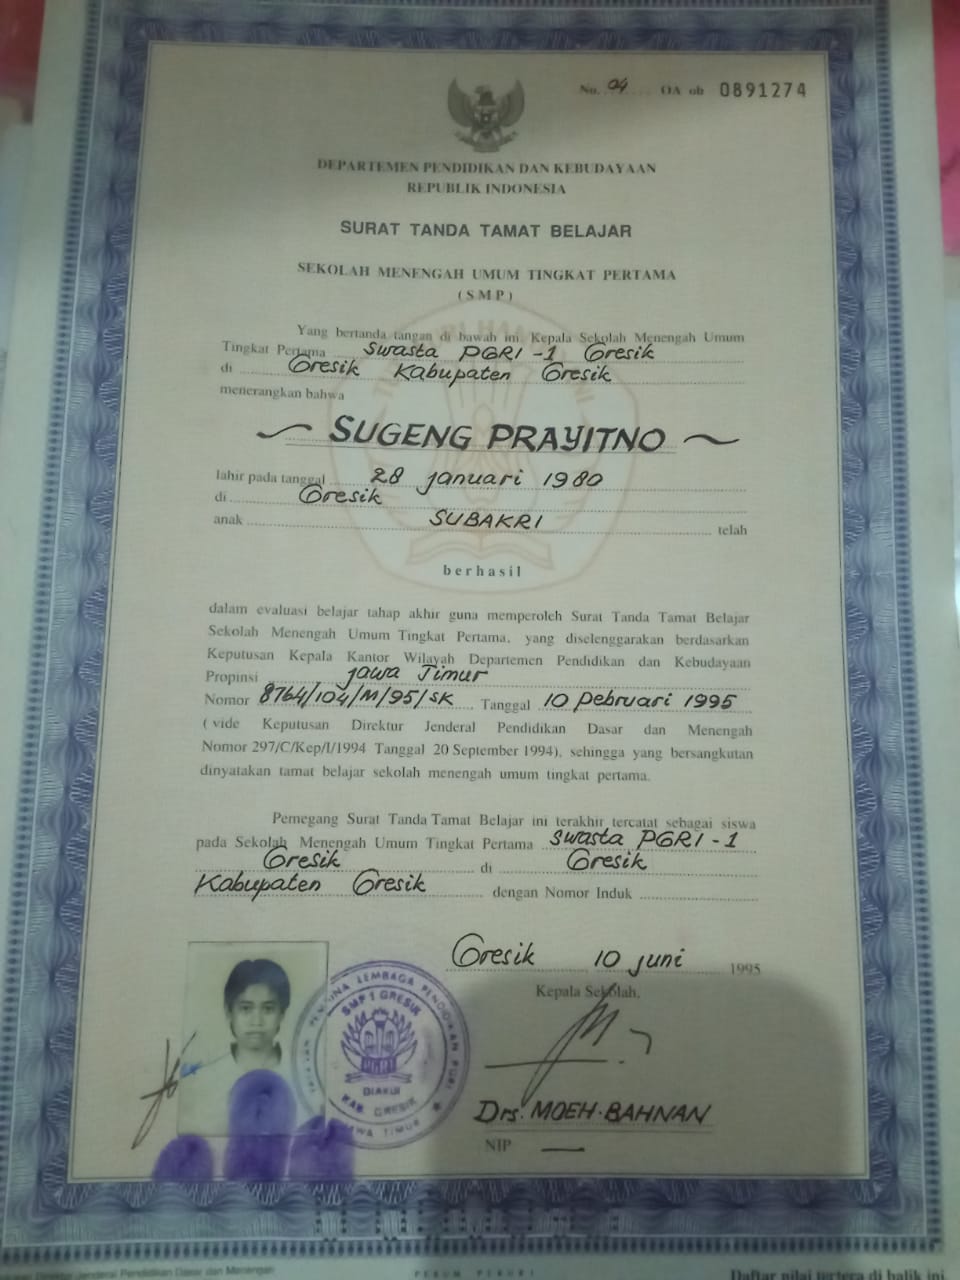 No. 04 OA ob 0891274
DEPARTEMEN PENDIDIKAN DAN KEBUDAYAAN
REPUBLIK INDONESIA
SURAT TANDA TAMAT BELAJAR
SEKOLAH MENENGAH UMUM TINGKAT PERTAMA
(SMP)
Yang bertanda tangan di bawah ini, Kepala Sekolah Menengah Umum
Tingkat Pertama Swasta PGRI-1 Gresik
di Gresik Kabupaten Gresik
menerangkan bahwa
SUGENG PRAYITNO
lahir pada tanggal 28 Januari 1980
di Gresik
anak SUBAKRI telah
berhasil
dalam evaluasi belajar tahap akhir guna memperoleh Surat Tanda Tamat Belajar
Sekolah Menengah Umum Tingkat Pertama, yang diselenggarakan berdasarkan
Keputusan Kepala Kantor Wilayah Departemen Pendidikan dan Kebudayaan
Propinsi Jawa Timur
Nomor 8764/104/M/95/SK Tanggal 10 Pebruari 1995
(vide Keputusan Direktur Jenderal Pendidikan Dasar dan Menengah
Nomor 297/C/Kep/I/1994 Tanggal 20 September 1994), sehingga yang bersangkutan
dinyatakan tamat belajar sekolah menengah umum tingkat pertama.
Pemegang Surat Tanda Tamat Belajar ini terakhir tercatat sebagai siswa
pada Sekolah Menengah Umum Tingkat Pertama Swasta PGRI-1
Gresik di Gresik
Kabupaten Gresik dengan Nomor Induk
Gresik 10 Juni 1995
Kepala Sekolah,
LEMBAGA PENDIDIKAN PGRI
SMP 1 GRESIK
PGRI
DIAKUI
KAB. GRESIK
JAWA TIMUR
Drs. MOEH. BAHNAN
NIP —
Direktorat Jenderal Pendidikan Dasar dan Menengah
PERUM PERURI
Daftar nilai tertera di balik ini